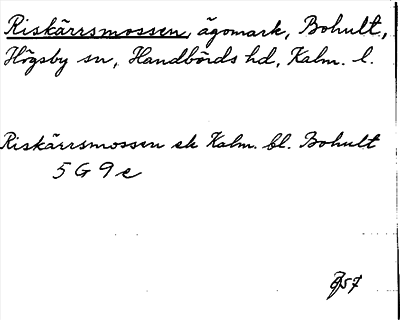 Riskärrsmossen, ägomark, Bohult,
Högsby sn, Handbörds hd, Kalm. l.
Riskärrsmossen ek Kalm. bl. Bohult
5 G 9 e
57